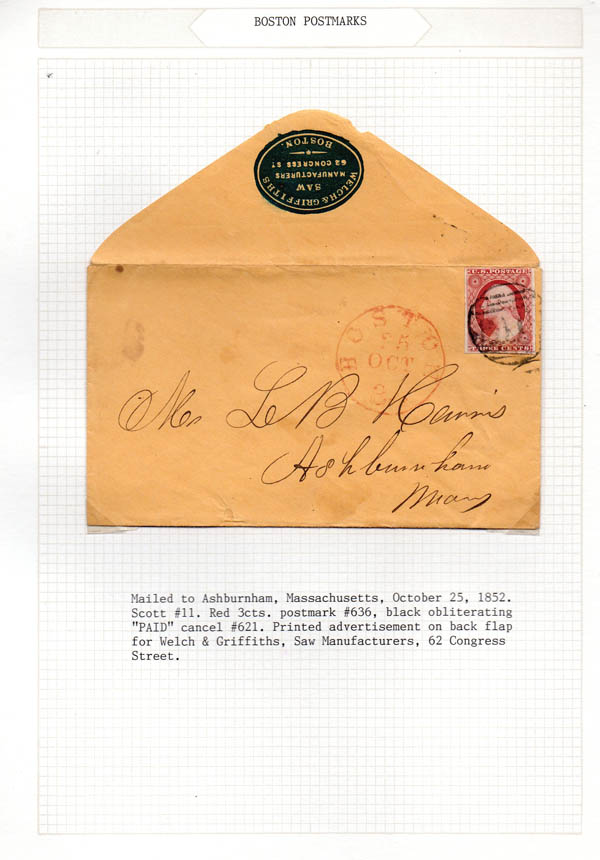 BOSTON POSTMARKS
WELCH & GRIFFITHS
SAW
MANUFACTURERS
62 CONGRESS ST
BOSTON.
U.S. POSTAGE
THREE CENTS
BOSTON
25
OCT
Mr L B
Ashburnham
Mass
Mailed to Ashburnham, Massachusetts, October 25, 1852.
Scott #11. Red 3cts. postmark #636, black obliterating
"PAID" cancel #621. Printed advertisement on back flap
for Welch & Griffiths, Saw Manufacturers, 62 Congress
Street.